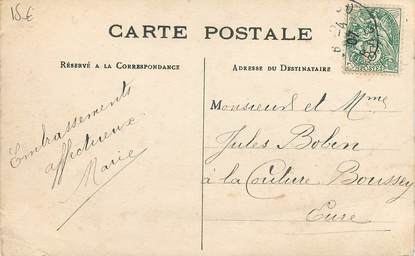 15€
CARTE POSTALE
RÉSERVÉ A LA CORRESPONDANCE
ADRESSE DU DESTINATAIRE
Embrassements
affectueux
Marie
Monsieur et Mme
Jules Bobin
à la Couture Boussey
Eure